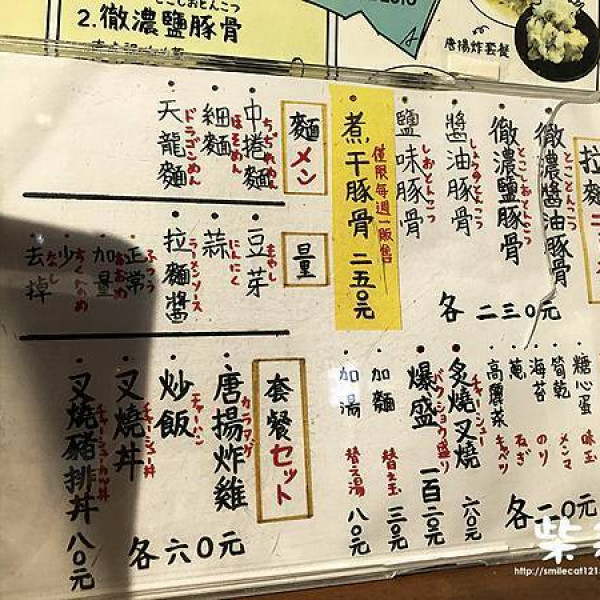 2.徹濃鹽豚骨
とこしおとんこつ
唐揚炸套餐
拉麵
徹濃醬油豚骨
とことんこつ
徹濃鹽豚骨
とこしおとんこつ
醬油豚骨
しょうゆとんこつ
鹽味豚骨
しおとんこつ
各二三0元
煮干豚骨 二五0元
僅限每週一販售
麵メン
中捲麵
ちぢれめん
細麵
ほそめん
天龍麵
ドラゴンめん
量
豆芽
もやし
蒜
にんにく
拉麵醬
ラーメンソース
正常
ふつう
加量
おおめ
少
すくなめ
去掉
なし
糖心蛋
味玉
筍乾
メンマ
海苔
のり
蔥
ねぎ
高麗菜
キャベツ
各二0元
炙燒叉燒 六0元
チャーシュー
爆盛 一百二0元
バクショウ盛り
加麵 替え玉 三0元
加湯 替え湯 八0元
套餐セット
唐揚炸雞
カラアゲ
炒飯
チャーハン
叉燒丼
チャーシュー丼
各六0元
叉燒豬排丼 八0元
チャーシューカツ丼
http://smilecat121